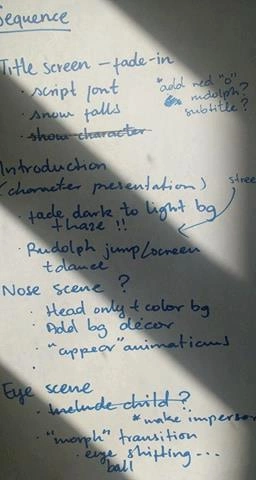 Sequence
Title screen - fade-in
· script font
· snow falls
· show character
*add red "o"
rudolph?
subtitle?
Introduction
(character presentation)
stree
· fade dark to light bg
+ haze !!
· Rudolph jump/screen
+ dance
Nose scene ?
· Head only + color bg
· Add bg decor
· "appear" animations
·
Eye scene
· Include child ?
*make imperson
· "morph" transition
· eye shifting...
ball